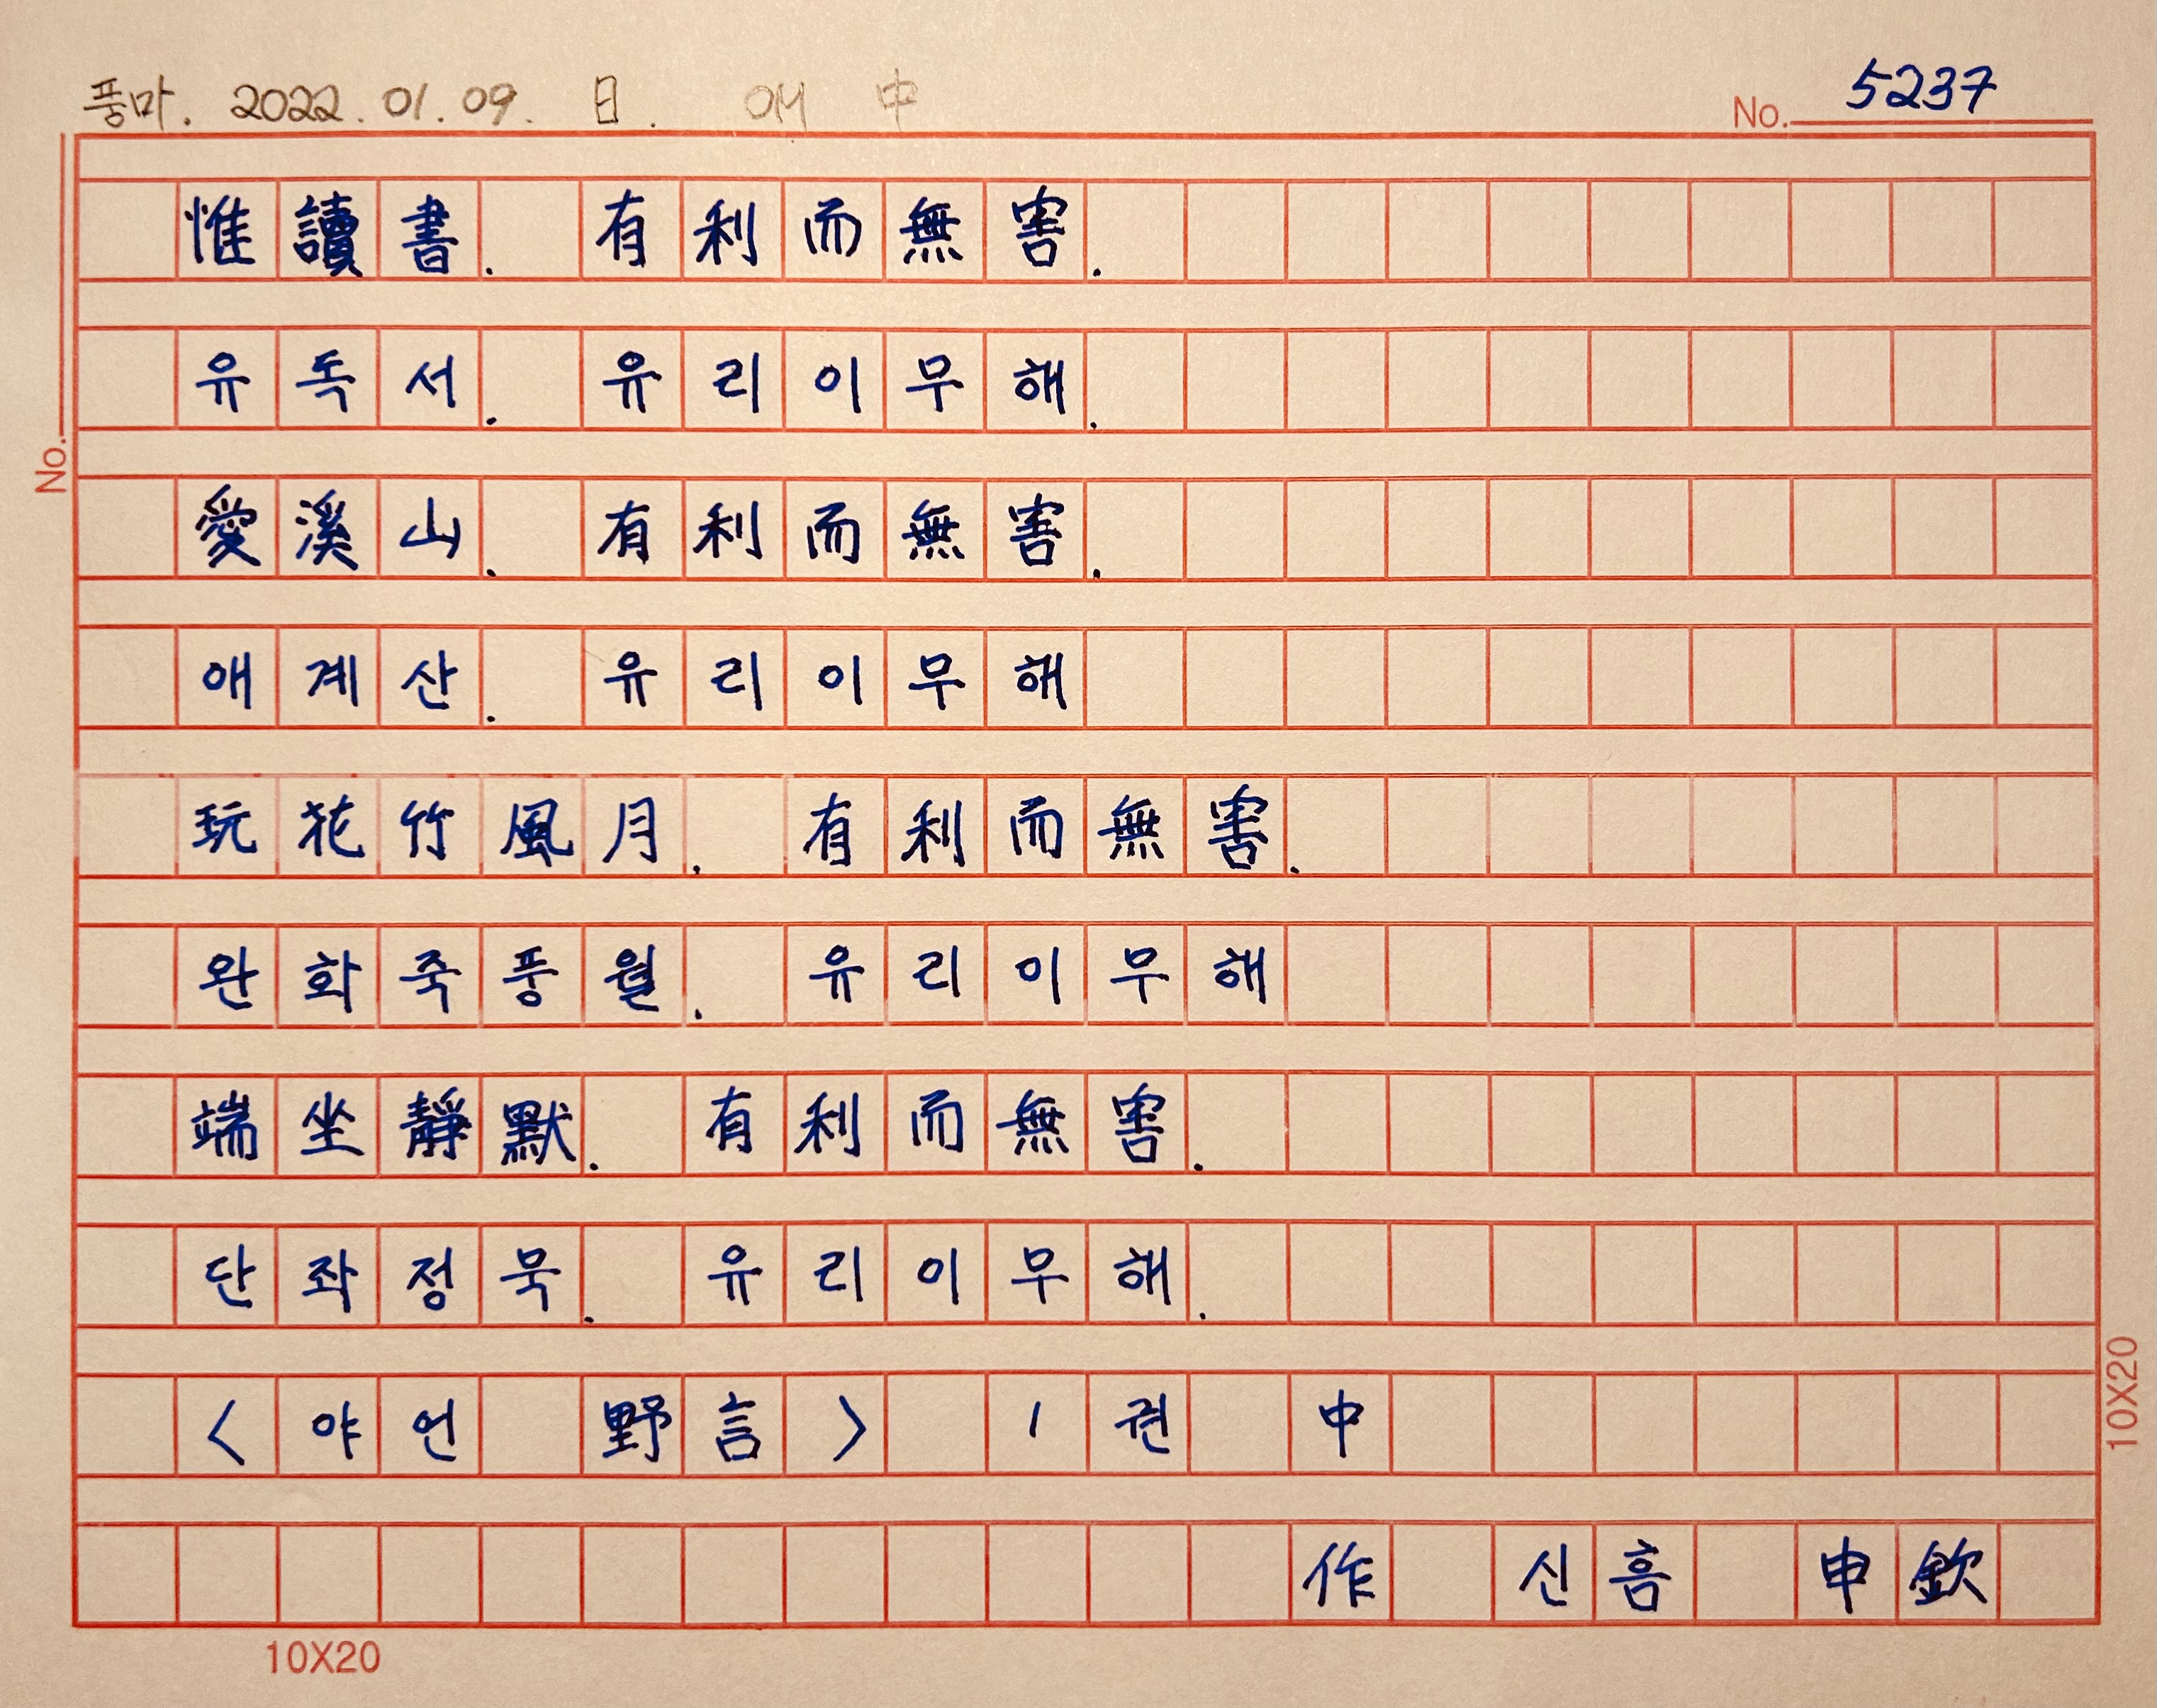 풍마. 2022. 01. 09. 日. 04 中
No. 5237
惟讀書. 有利而無害.
유독서. 유리이무해.
No.
愛溪山. 有利而無害.
애계산. 유리이무해
玩花竹風月. 有利而無害.
완화죽풍월. 유리이무해
端坐靜默. 有利而無害.
단좌정묵. 유리이무해.
<야언 野言> 1권 中
作 신흠 申欽
10X20
10X20